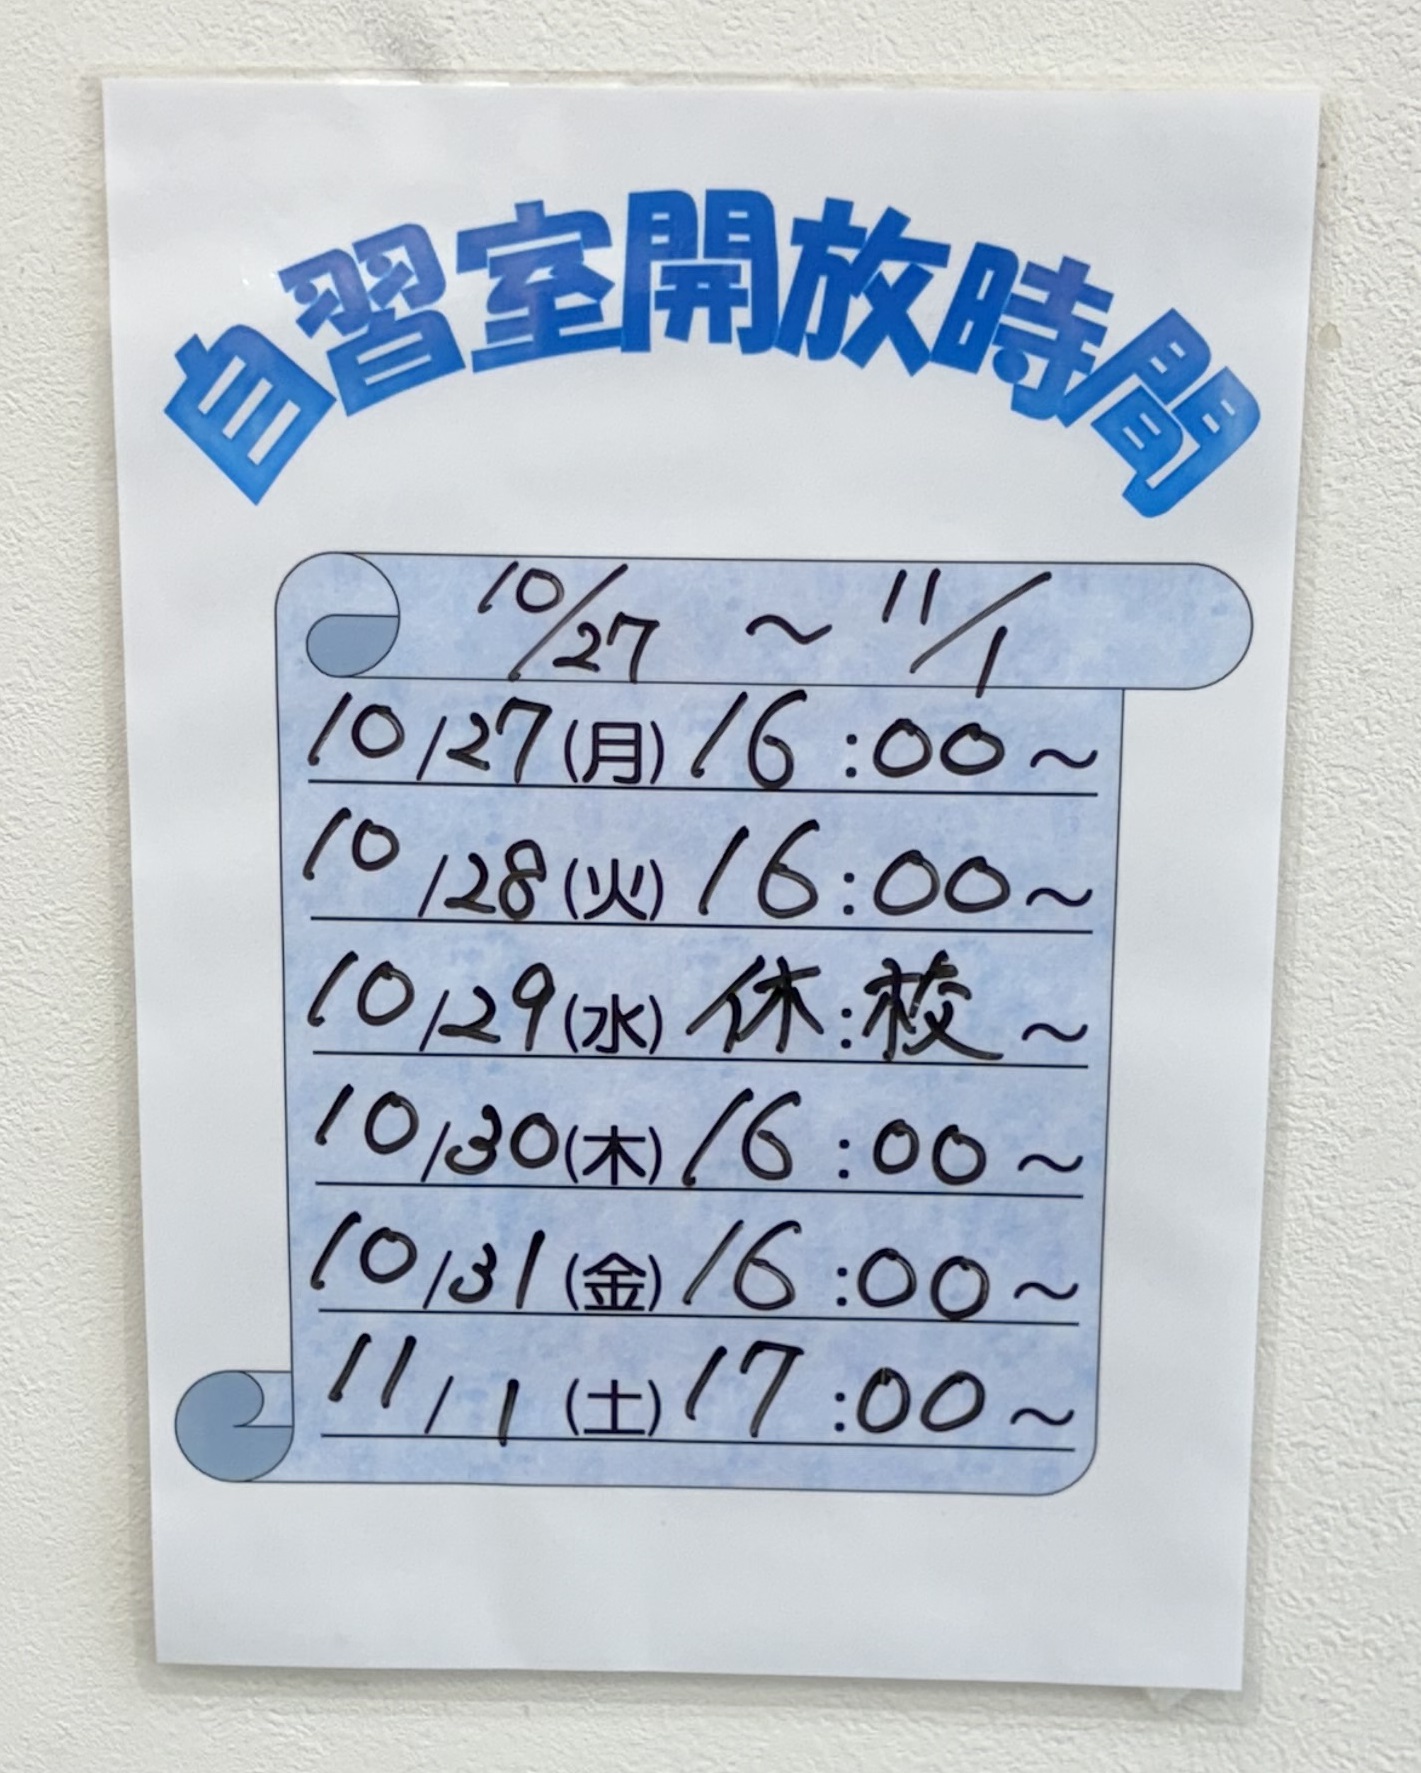 自習室開放時間
10/27 ～ 11/1
10/27(月) 16:00～
10/28(火) 16:00～
10/29(水) 休:校～
10/30(木) 16:00～
10/31(金) 16:00～
11/1(土) 17:00～